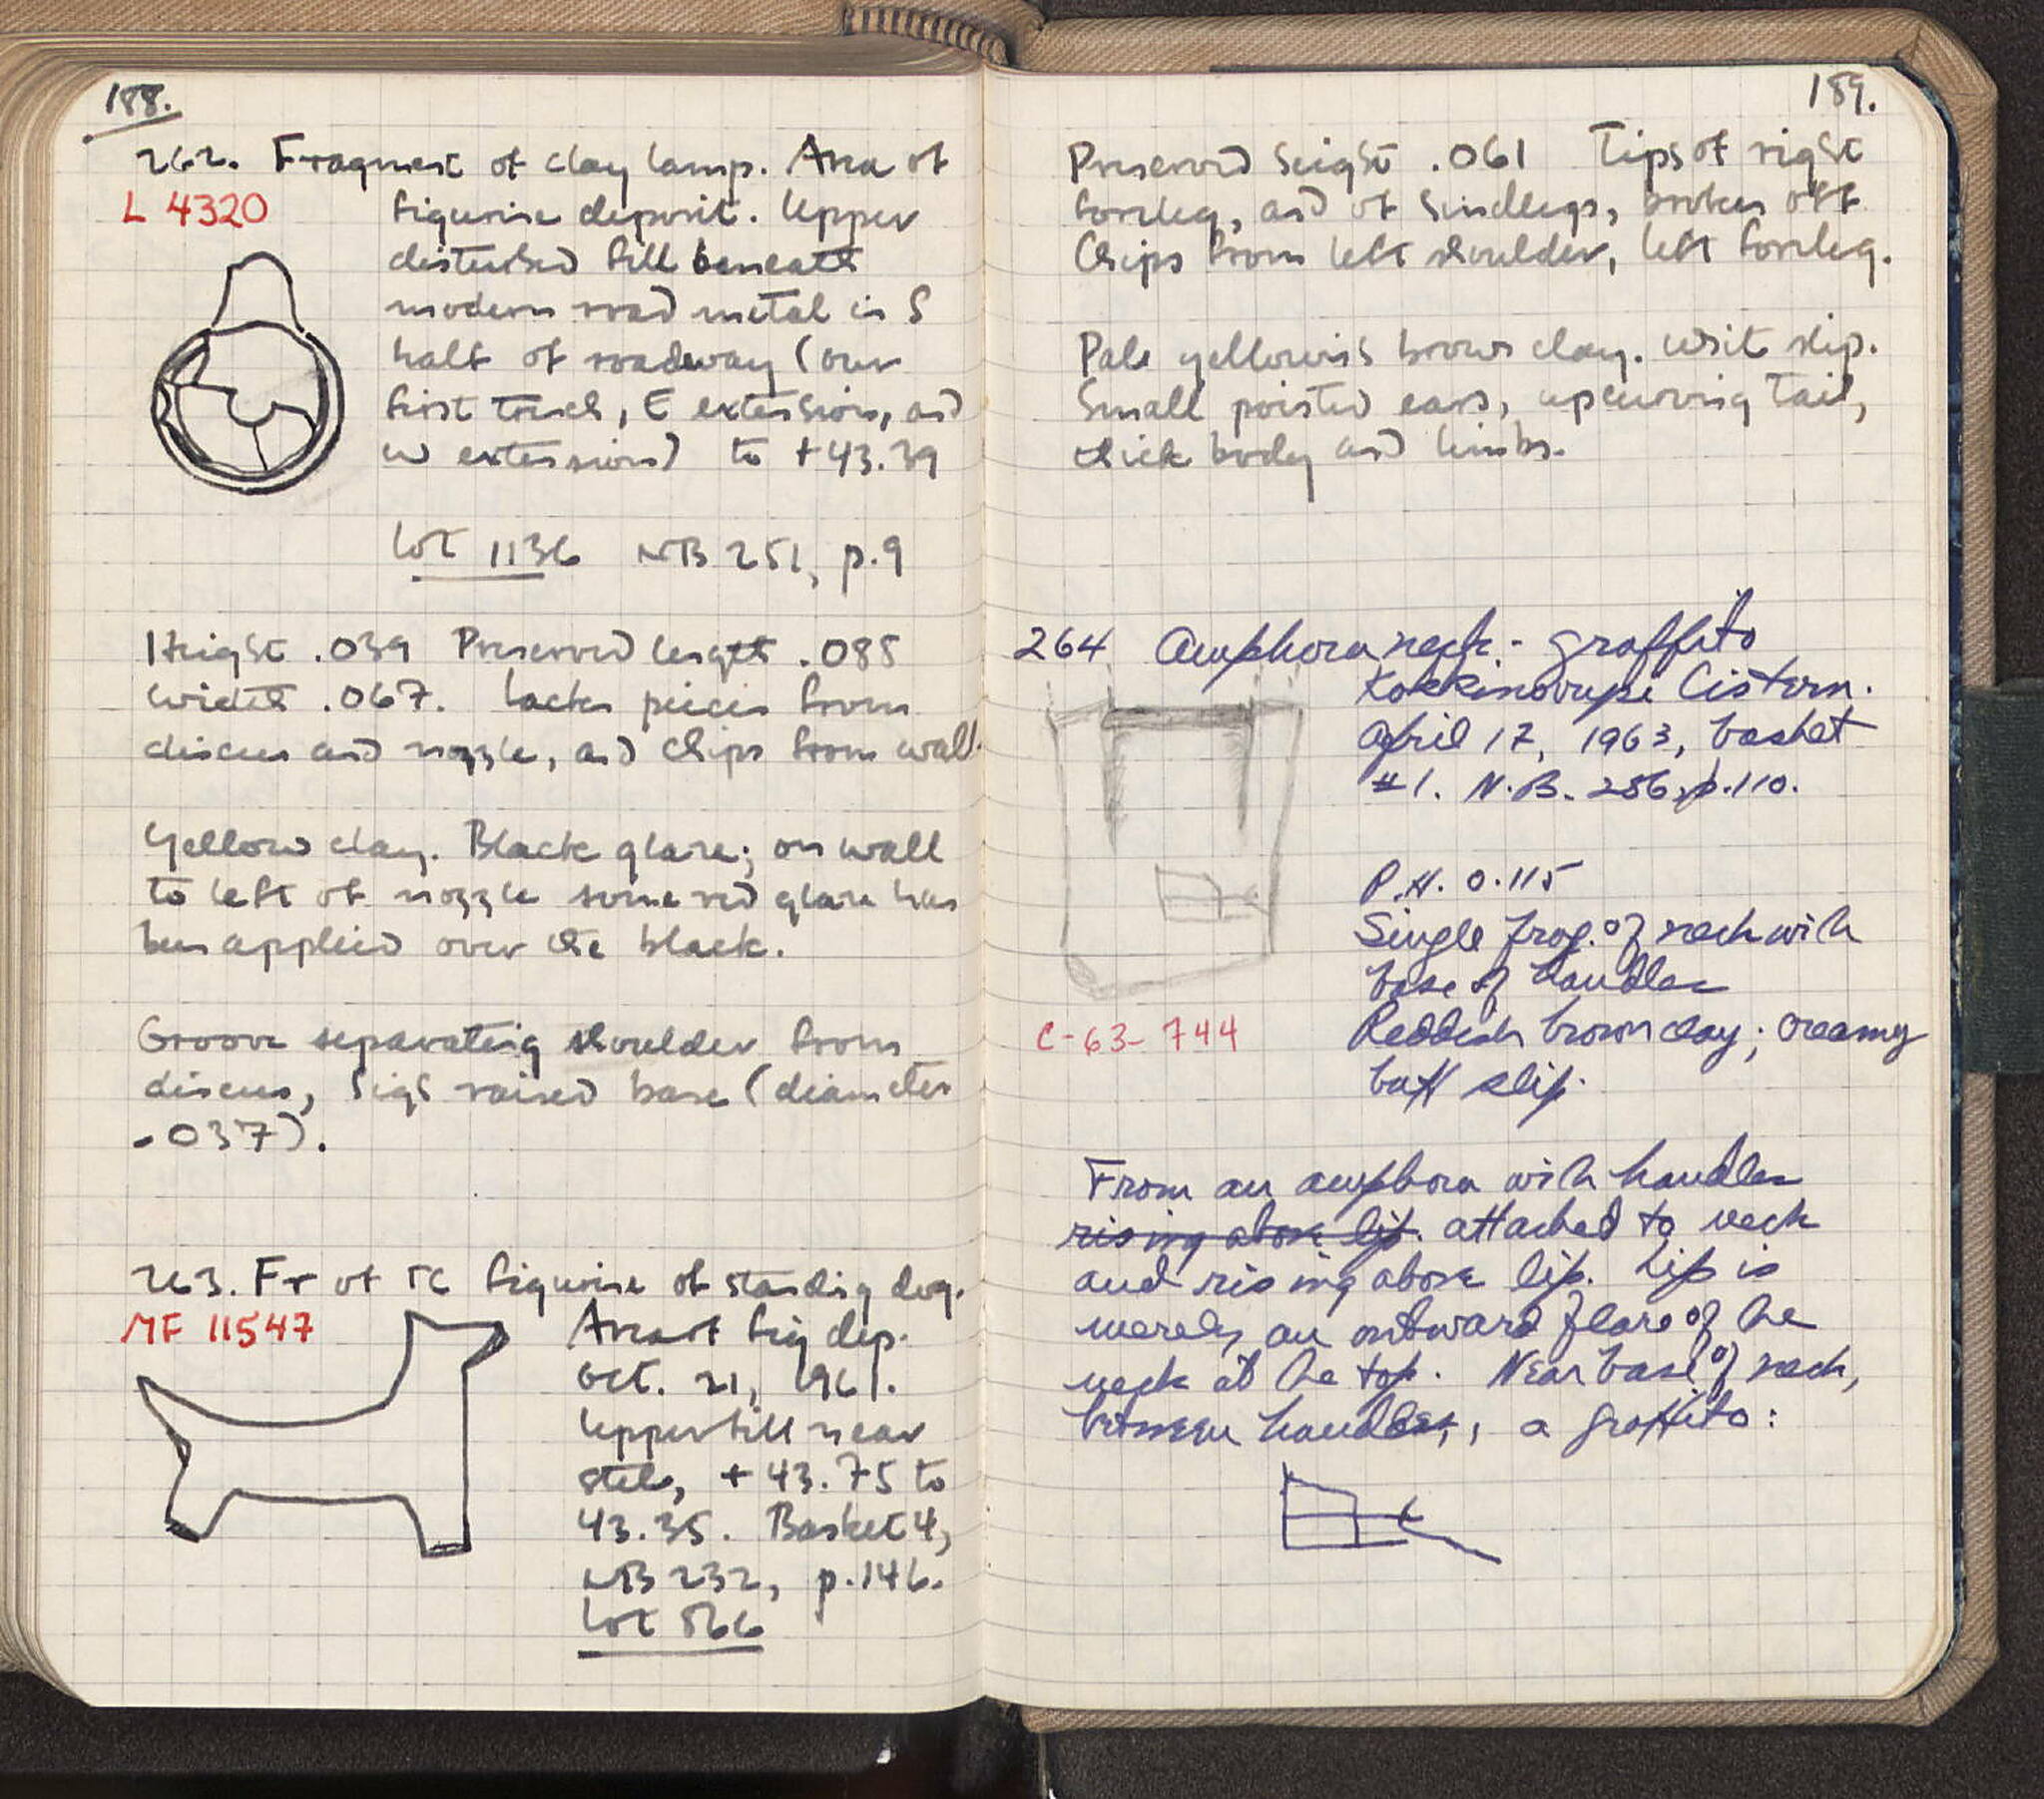 188.
262. Fragment of clay lamp. Area of
L 4320
figurine deposit. Upper
disturbed fill beneath
modern road metal in S
half of roadway (our
first trench, E extension, and
W extension) to +43.39
Lot 1136 NB 251, p.9
Height .039 Preserved length .085
Width .067. Lacks pieces from
discus and nozzle, and chips from wall.
Yellow clay. Black glaze; on wall
to left of nozzle some red glaze has
been applied over the black.
Groove separating shoulder from
discus, high raised base (diameter
.037).
263. Fr of TC figurine of standing dog.
MF 11547
Area of fig dep.
Oct. 21, 1961.
Upper fill near
stele, +43.75 to
43.35. Basket 4,
NB 232, p.146.
Lot 866
189.
Preserved height .061 Tips of right
foreleg, and of hindlegs, broken off
Chips from left shoulder, left foreleg.
Pale yellowish brown clay. White slip.
Small pointed ears, upcurving tail,
thick body and limbs.
264 Amphora neck - graffito
Kokkinovrysi Cistern.
April 17, 1963, basket
#1. N.B. 286, p.110.
P.H. 0.115
Single frag. of neck with
base of handles
C-63-744
Reddish brown clay; creamy
buff slip.
From an amphora with handles
rising above lip. attached to neck
and rising above lip. Lip is
merely an outward flare of the
neck at the top. Near base of neck,
between handles, a graffito: